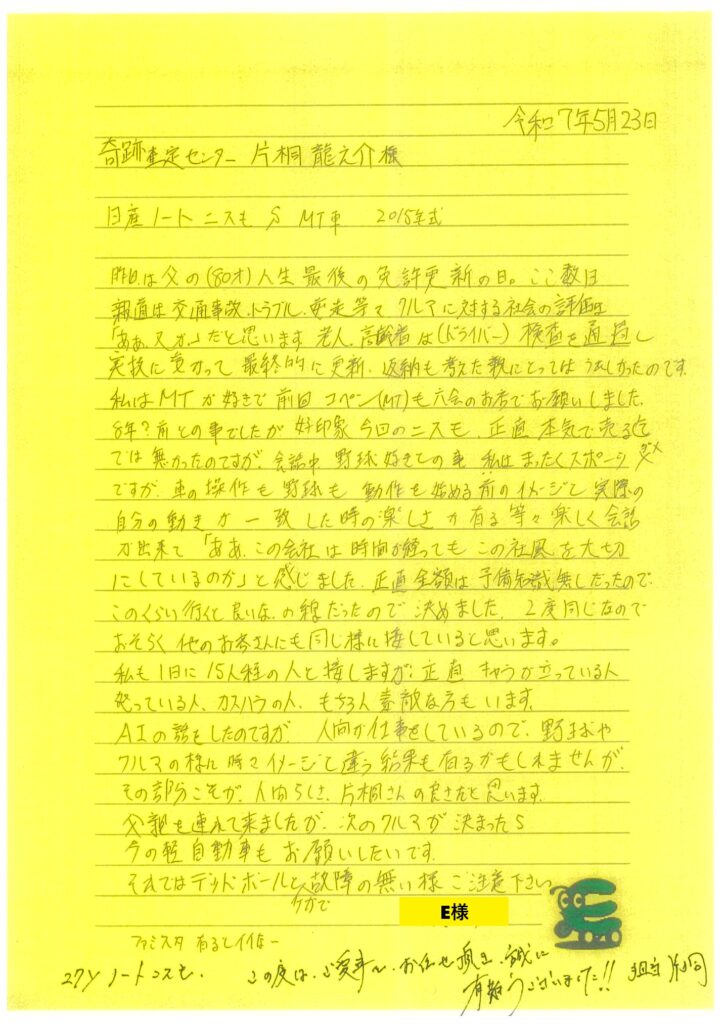 令和7年5月23日
奇跡査定センター 片桐 龍之介様
日産ノート ニスモ S MT車 2015年式
昨日は父の(80才)人生最後の免許更新の日。ここ数日
報道は交通事故、トラブル、暴走等で クルマに対する社会の評価は
「ああ、又か」だと思います 老人、高齢者は(ドライバー) 検査を通過し
実技に受かって 最終的に更新、返納も考えた親にとっては うれしかったのです。
私は MTが好きで 前回 コペン(MT)も六会のお店でお願いしました。
8年?前との事でしたが 好印象 今回のニスモ、正直 本気で売る迄
では無かったのですが、会話中 野球好きとの事 私はまったくスポーツ ダメ
ですが、車の操作も野球も 動作を始める前のイメージと実際の
自分の動きが一致した時の楽しさが有る等々 楽しく会話
が出来て「ああ、この会社は時間が経ってもこの社風を大切
にしているのか」と感じました。正直金額は予備知識無しだったので、
このくらい行くと良いな、の線だったので 決めました。2度同じなので
おそらく 他のお客さんにも同じ様に接していると思います。
私も1日に15人程の人と接しますが、正直 キャラが立っている人
怒っている人、カスハラの人、もちろん素敵な方もいます。
AIの話をしたのですが 人間が仕事をしているので、野球や
クルマの様に時々イメージと違う結果も有るかもしれませんが、
その部分こそが、人間らしさ、片桐さんの良さだと思います。
父親も連れて来ましたが、次のクルマが決まったら
今の軽自動車もお願いしたいです。
それではデッドボールと故障の無い様 ご注意下さい
ケガで
E様
ファミスタ 有るとイイなー
27Y ノートニスモ、 この度は、ご愛車を、お任せ頂き、誠に
有難うございました!! 担当 片桐